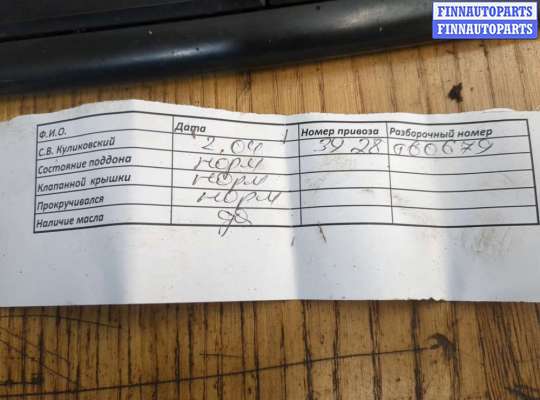 FINNAUTOPARTS
FINNAUTOPARTS
Ф.И.О. Дата Номер привоза Разборочный номер
С.В. Куликовский 2,04 3928 ф0679
Состояние поддона норм
Клапанной крышки норм
Прокручивался норм
Наличие масла да
FINNAUTOPARTS
FINNAUTOPARTS